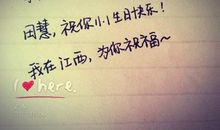 田慧，祝你小小生日快乐！
我在江西，为你祝福~
I ❤ here.